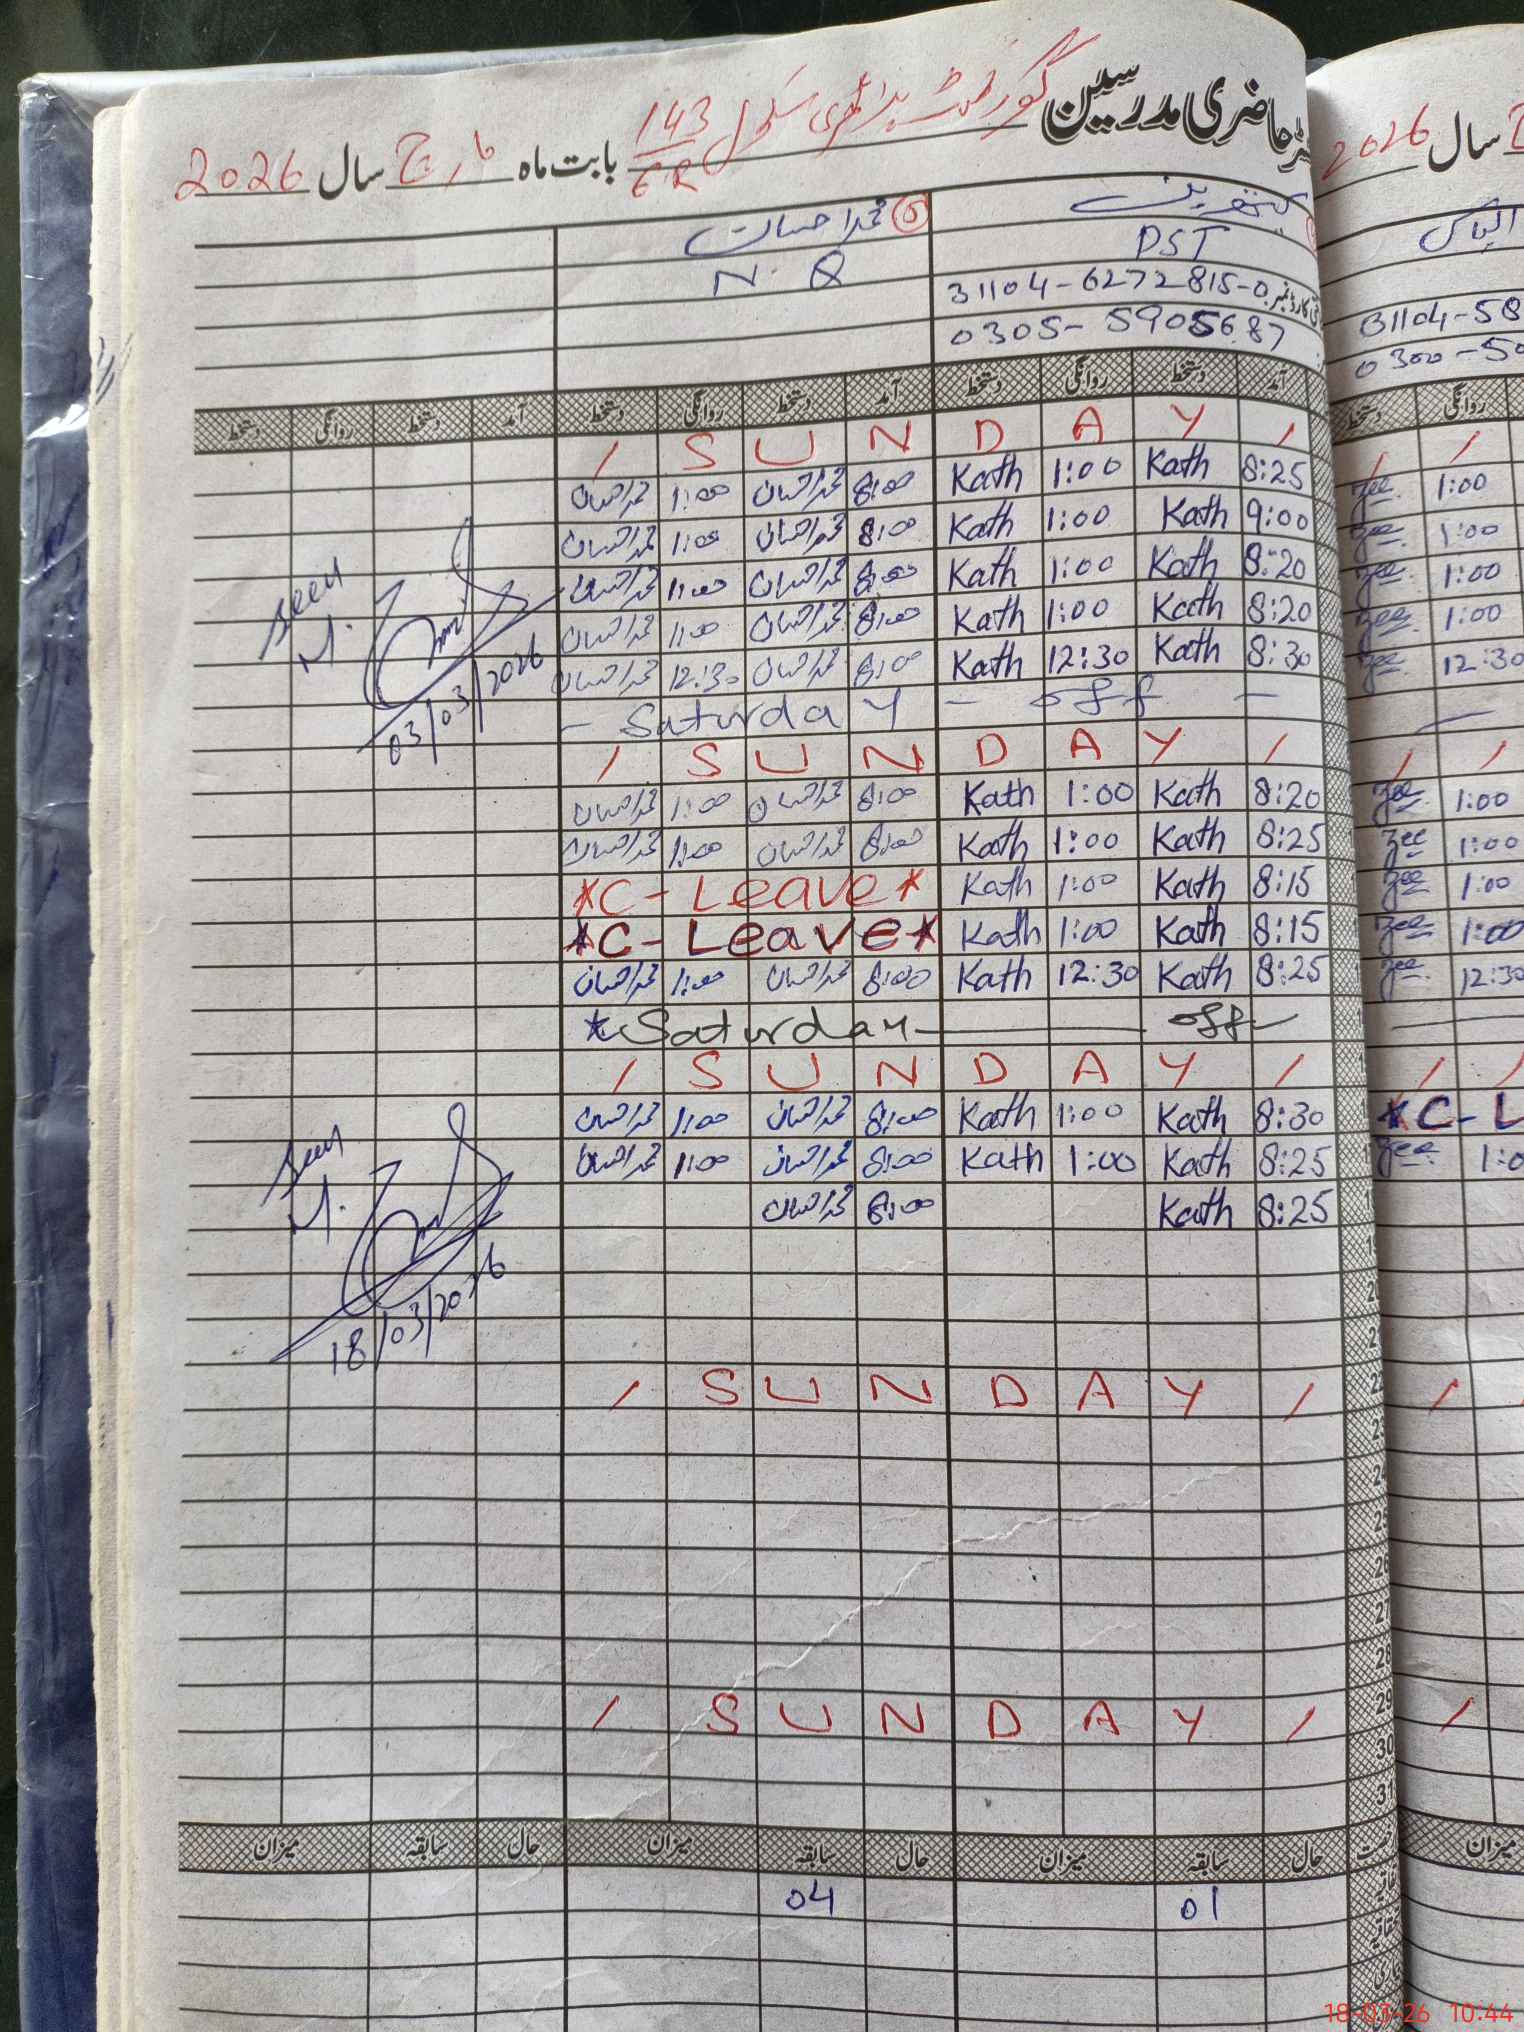 حاضری مدرسین گورنمنٹ پرائمری سکول 143/6R بابت ماہ مارچ سال 2026
2026 سال
کیتھرین
5 محمد احسان
PST
N.Q
31104-6272815-0
0305-5905687
31104-58
0300-50
آمد دستخط روانگی دستخط آمد دستخط روانگی دستخط آمد دستخط روانگی دستخط
روانگی دستخط
/ S U N D A Y /
محمد احسان 1:00 محمد احسان 8:00 Kath 1:00 Kath 8:25 Zee 1:00
محمد احسان 1:00 محمد احسان 8:00 Kath 1:00 Kath 9:00 Zee 1:00
محمد احسان 1:00 محمد احسان 8:00 Kath 1:00 Kath 8:20 Zee 1:00
محمد احسان 1:00 محمد احسان 8:00 Kath 1:00 Kath 8:20 Zee 1:00
محمد احسان 12:30 محمد احسان 8:00 Kath 12:30 Kath 8:30 Zee 12:30
- Saturday - off -
Seen
03/03/2026
/ S U N D A Y /
محمد احسان 1:00 محمد احسان 8:00 Kath 1:00 Kath 8:20 Zee 1:00
محمد احسان 1:00 محمد احسان 8:00 Kath 1:00 Kath 8:25 Zee 1:00
*C-Leave* Kath 1:00 Kath 8:15 Zee 1:00
*C-Leave* Kath 1:00 Kath 8:15 Zee 1:00
محمد احسان 1:00 محمد احسان 8:00 Kath 12:30 Kath 8:25 Zee 12:30
*Saturday — off
/ S U N D A Y /
محمد احسان 1:00 محمد احسان 8:00 Kath 1:00 Kath 8:30 *C-L
محمد احسان 1:00 محمد احسان 8:00 Kath 1:00 Kath 8:25 Zee 1:0
محمد احسان 8:00 Kath 8:25
Seen
18/03/2026
/ S U N D A Y /
26
27
28
/ S U N D A Y / 29
30
31
حال سابقہ میزان حال سابقہ میزان حال سابقہ میزان
میزان
04 01
18-03-26 10:44